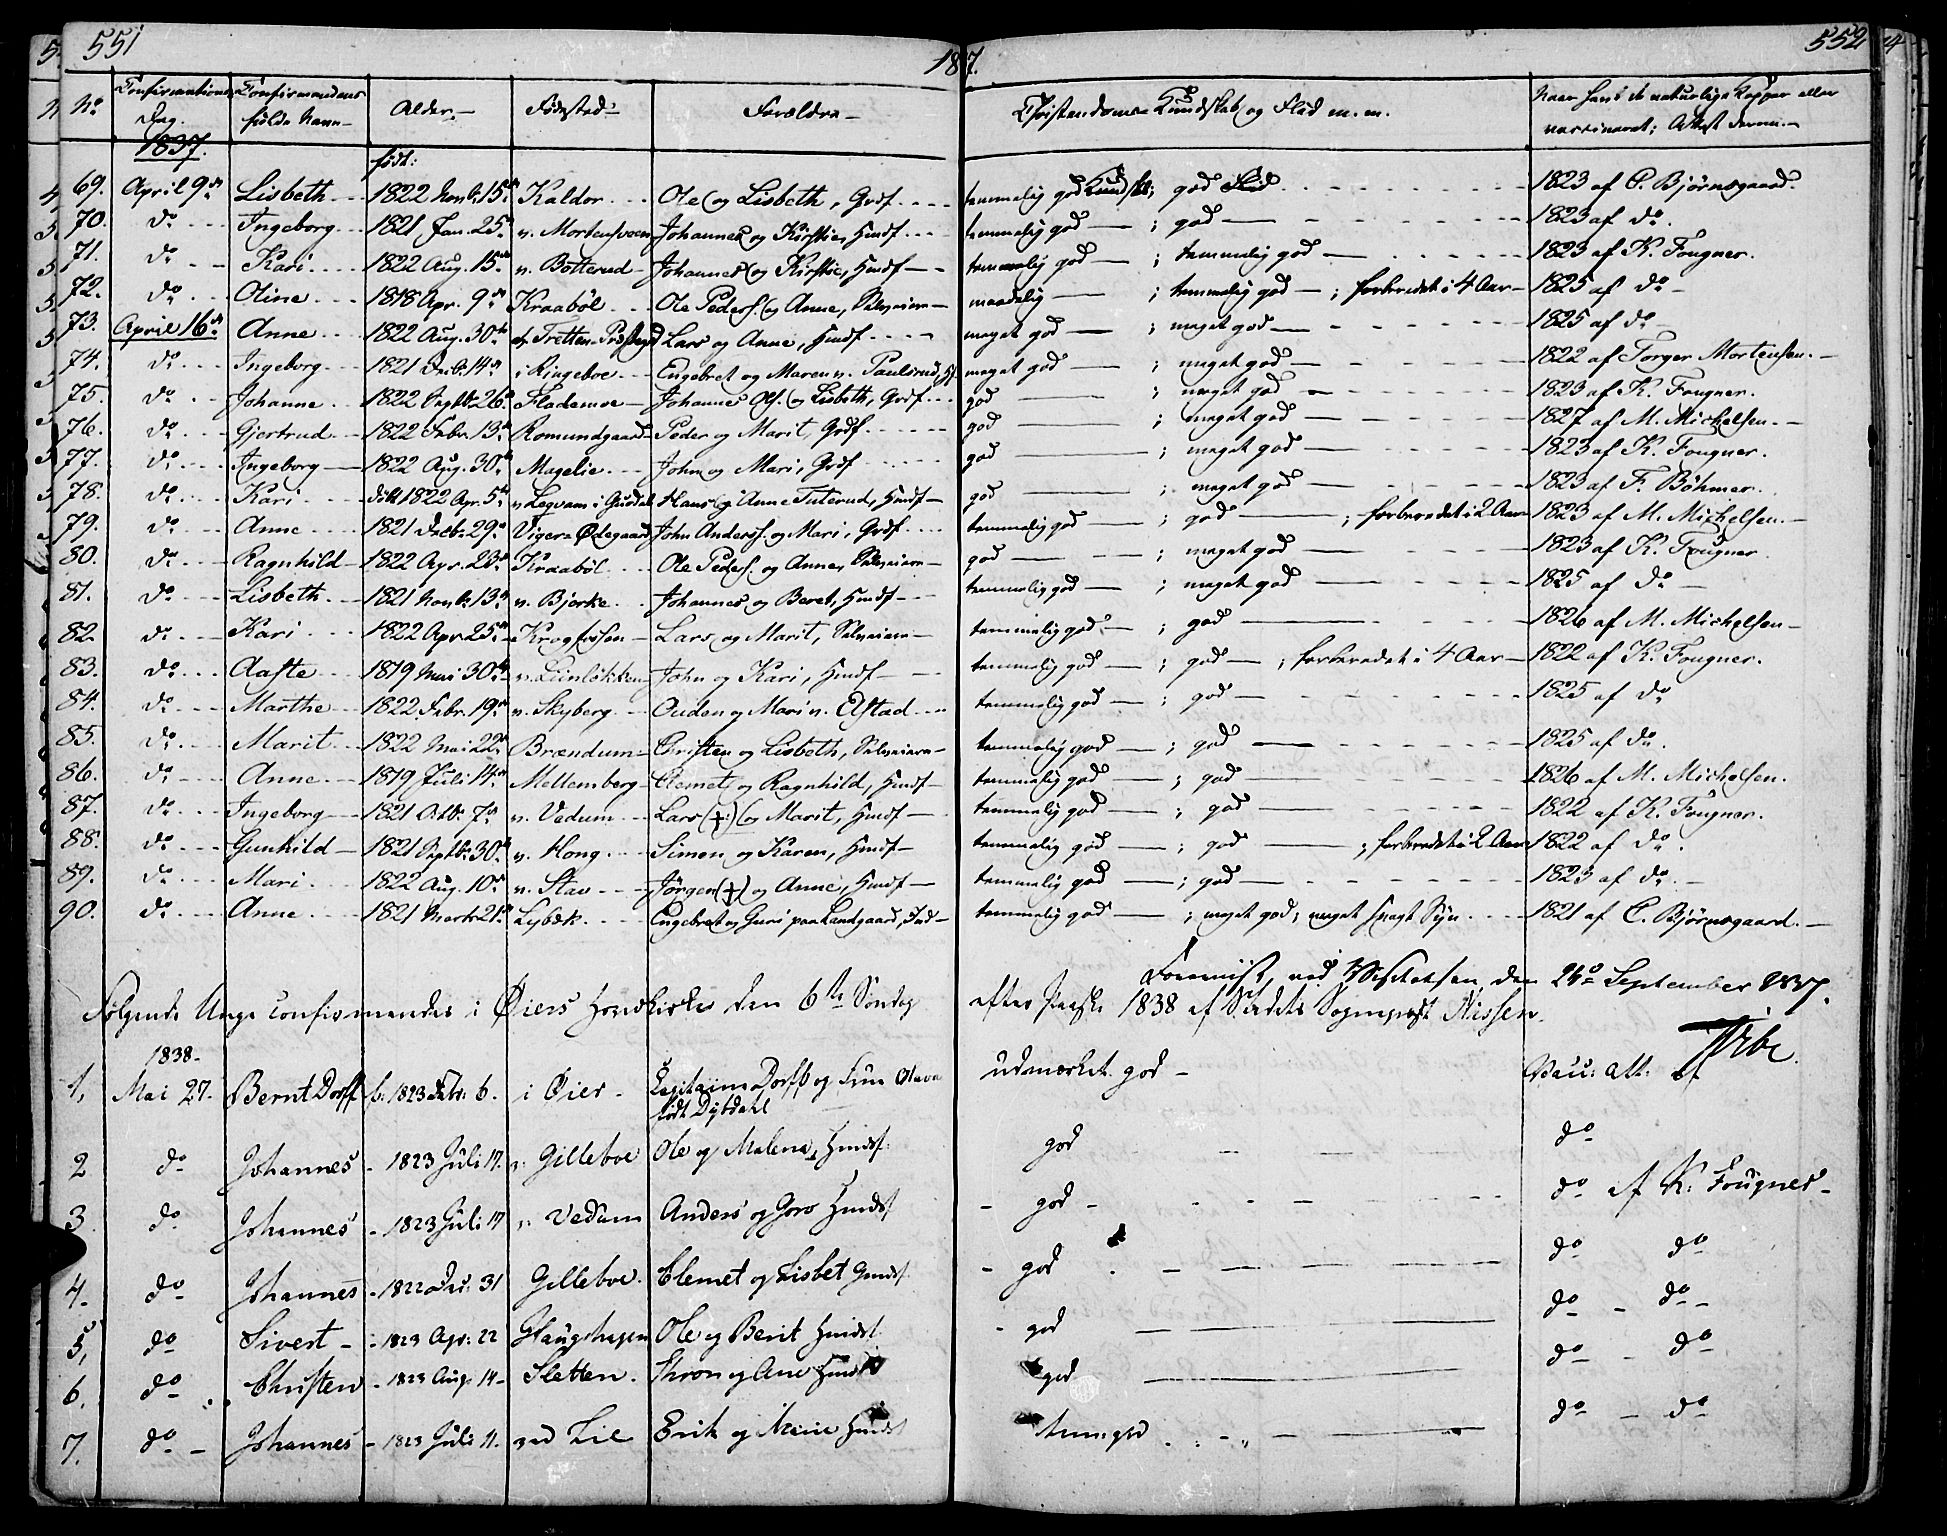 551
187.
552
No
Confirmations Dag.
Confirmandens fulde Navn
Alder
Fødested
Forældre
Christendoms Kundskab og Flid m. m.
Naar havt de naturlige Kopper eller vaccineret; Attest derom
1837.
født:
69. April 9de Lisbeth 1822 Novb. 15de Kaldor Ole og Lisbeth, Grdf. temmelig god Kundskb; god Flid 1823 af C. Bjørnsgaard.
70. do Ingeborg 1821 Jan. 25de n. Mortensveen Johannes og Kirstie, Hmdf temmelig god ; god 1823 af do.
71. do Kari 1822 Aug. 15de n. Botterud Johannes og Kirstie, Hmdf temmelig god ; temmelig god 1823 af K. Fougner.
72. do Oline 1818 Apr. 9de Kraabøl Ole Peders. og Anne, Selveiere maadelig ; temmelig god ; forberedet i 4 Aar 1825 af do
73. April 16de Anne 1822 Aug. 30te Lars og Anne, Hmdf meget god ; meget god 1825 af do
74. do Ingeborg 1821 Decb. 14de i Ringeboe Engebret og Maren n. Paulsrud, meget god ; meget god 1822 af Torger Mortensen.
75. do Johanne 1822 Septb. 26de Flademoe Johannes Ols. og Lisbeth, Grdf. god ; meget god 1823 af K. Fougner.
76. do Gjertrud 1822 Febr. 13de Romundgaard Peder og Marit, Grdf. god ; meget god 1827 af M. Michelsen.
77. do Ingeborg 1822 Aug. 30te Magelie John og Mari, Grdf god ; meget god 1823 af K. Fougner.
78. do Kari født 1822 Apr. 5te n. Legvam i Gusdal Hans og Anne Tuterud, Hmdf god ; meget god 1823 af F. Bøhmer.
79. do Anne 1821 Decb. 29de Vigers Ødegaard John Anders. og Mari, Grdf. temmelig god ; god ; forberedet i 2 Aar 1823 af M. Michelsen.
80. do Ragnhild 1822 Apr. 23de Kraabøl Ole Peders. og Anne, Selveiere god ; meget god 1823 af K. Fougner
81. do Lisbeth 1821 Novb. 13de n. Bjerke Johannes og Beret, Hmdf temmelig god ; meget god 1825 af do
82. do Kari 1822 Apr. 25de Krogfossen Lars og Marit, Selveiere temmelig god ; god 1826 af M. Michelsen
83. do Aaste 1819 Mai 30te n. Lunløkken John og Kari, Hmdf temmelig god ; god ; forberedet i 4 Aar 1822 af K. Fougner.
84. do Marthe 1822 Febr. 19de n. Skyberg Ouden og Mari n. Elstad temmelig god ; god 1825 af do
85. do Marit 1822 Mai 22de Brændum Christen og Lisbeth, Selveiere temmelig god ; god 1825 af do.
86. do Anne 1819 Juli 14de Mellemberg Clemet og Ragnhild, Hmdf temmelig god ; god 1826 af M. Michelsen.
87. do Ingeborg 1821 Octb. 7de n. Vedum Lars (†) og Marit, Hmdf temmelig god ; god 1822 af K. Fougner.
88. do Gunhild 1821 Septb. 30te n. Hong Simen og Karen, Hmdf temmelig god ; god ; forberedet i 2 Aar 1822 af do.
89. do Mari 1822 Aug. 10de n. Stav Jørgen (†) og Anne, Hmdf temmelig god ; god 1823 af do.
90. do Anne 1821 Marts 21de Lybæk Engebret og Guri paa Landgaard, Ind temmelig god ; meget god; meget svagt Syn 1821 af C. Bjørnsgaard.
Foreviist ved Visitatsen den 26de September 1837.
Følgende Unge confirmeredes i Øiers Hovedkirke den 6te Søndag efter Paaske 1838 af Stedets Sognepræst Nissen.
1838
1, Mai 27. Bernt Dorff f. 1823 Febr: 6. i Øier Capitaine Dorff og Frue Olava født Dybdahl udmærket god Vacc: att: af
2 do Johannes 1823 Juli 17. n. Gilleboe Ole og Malena, Hmdsf. god do
3. do Johannes 1823 Juli 17 n. Vedum Anders og Goro Hmdsf god do af K: Fougner
4. do Johannes 1822 Dec: 31 Gilleboe Clemet og Lisbet Gmdsf. god do do
5, do Sivert 1823 Apr: 22 Glaugshagen Ole og Berit Hmdsf god do do
6. do Christen 1823 Aug: 14 Sletten Thron og Ane Hmdsf god do do
7. do Johannes 1823 Juli 11. ved Lie Erik og Marie Hmdsf tem: god do do